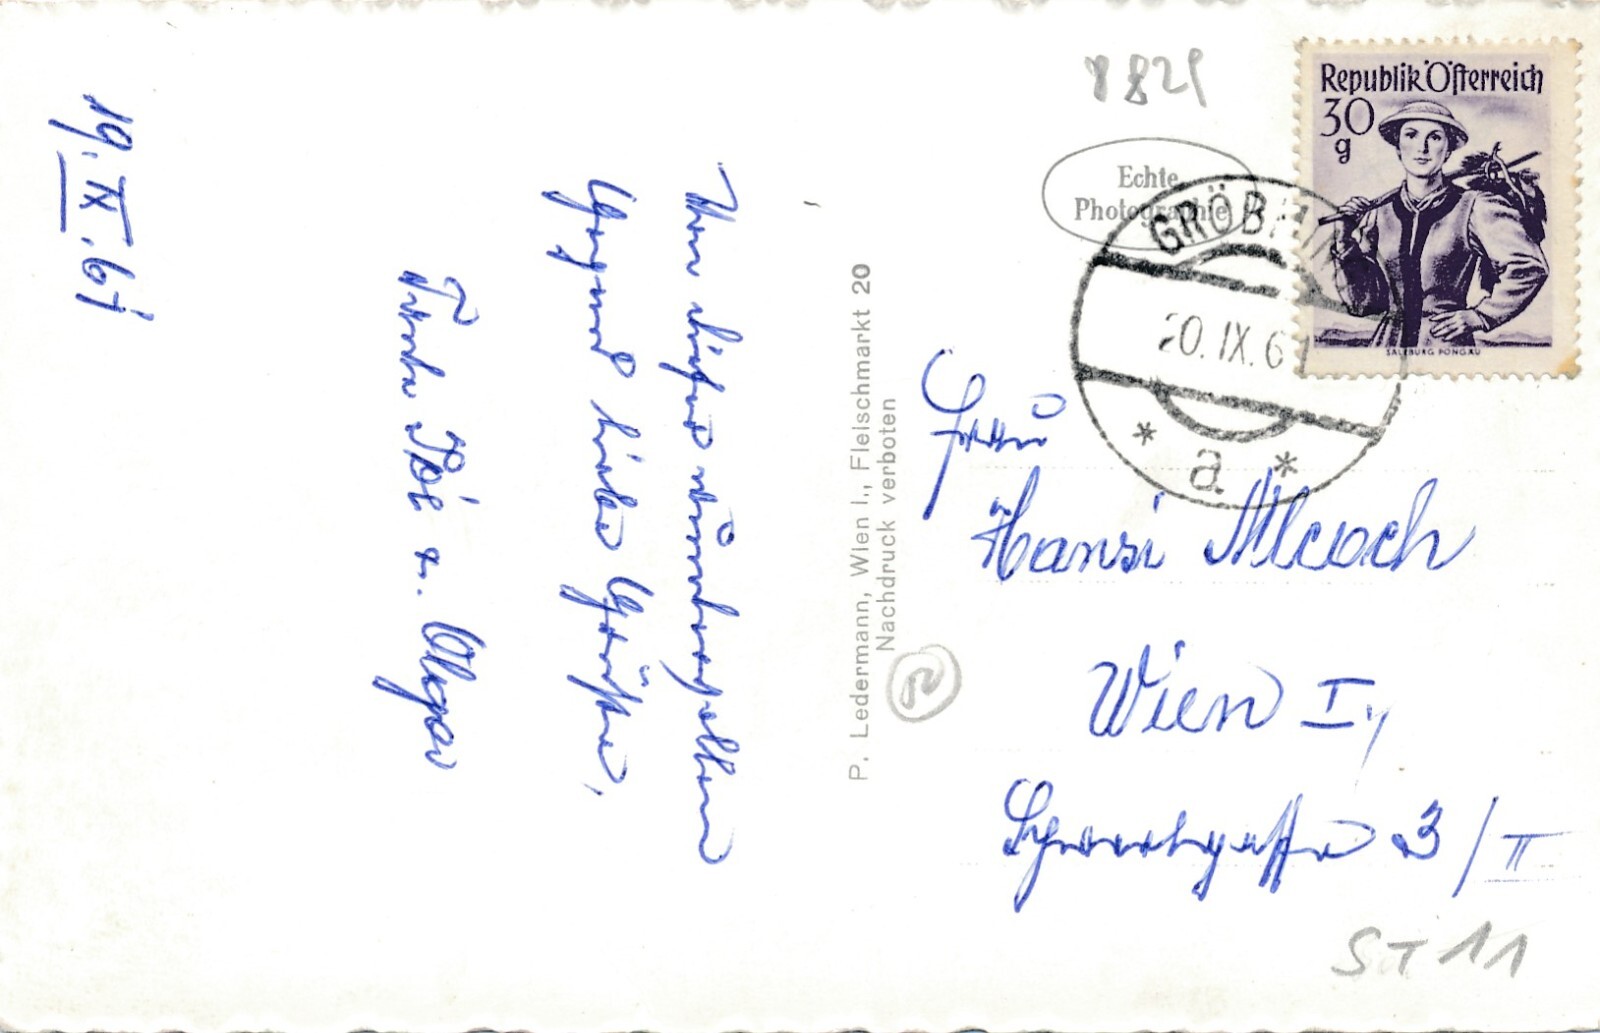 19. IX. 61
Von dieser wunderschönen
Gegend liebe Grüße,
Tante u. Olga
P. Ledermann, Wien I., Fleischmarkt 20
Nachdruck verboten
8821
Echte
Photographie
Republik Österreich
30
g
SALZBURG PONGAU
GRÖBMING
20. IX. 61
* a *
Frau
Hansi
Wien I.,
Schwertgasse 3/II
ST 11